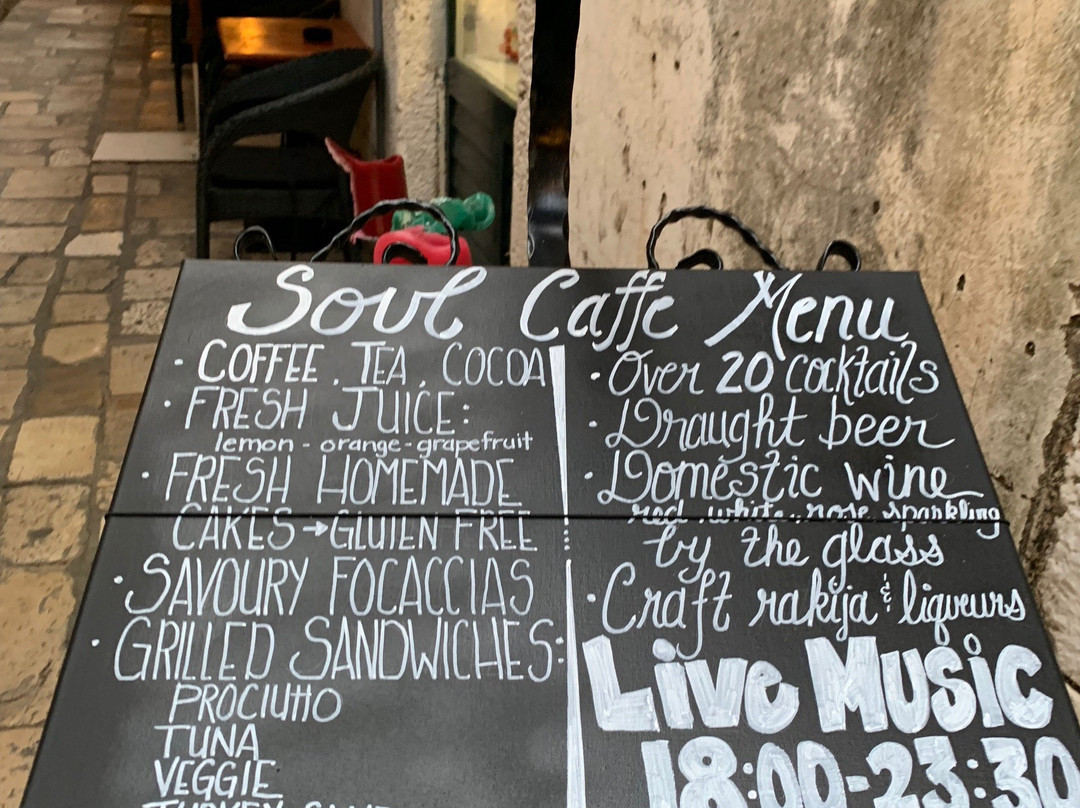 Soul Caffe Menu
· COFFEE . TEA . COCOA
· FRESH JUICE:
lemon - orange - grapefruit
· FRESH HOMEMADE
CAKES → GLUTEN FREE
· SAVOURY FOCACCIAS
· GRILLED SANDWICHES:
PROCIUTTO
TUNA
VEGGIE
· Over 20 cocktails
· Draught beer
· Domestic wine
red, white, rose, sparkling
by the glass
· Craft rakija & liqueurs
Live Music
18:00-23:30